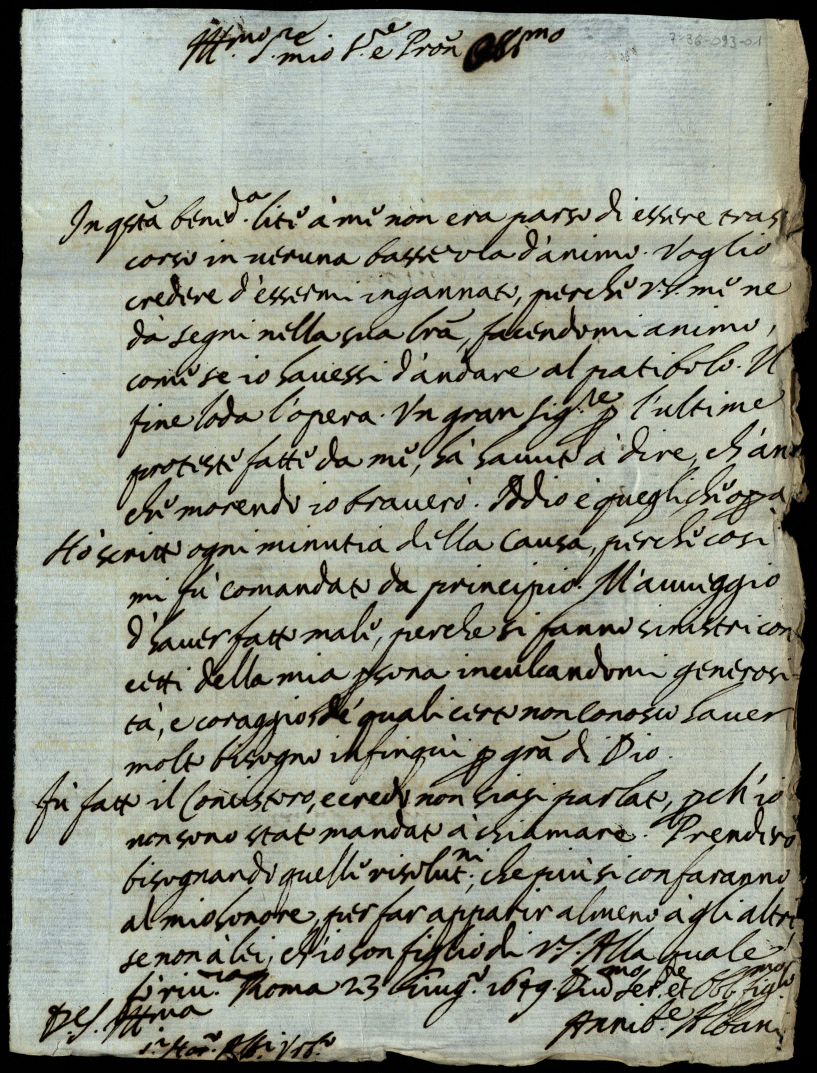 7-36-093-01
Ill.mo S.re mio S.re e Pron Oss.mo
In qsta bened.a lite à me non era parso di essere tras
corso in veruna bassezza d'animo. Voglio
credere d'essermi ingannato, perche V.S. me ne
dà segni nella sua lrã, facendomi animo,
come se io havessi d'andare al patibolo. Il
fine loda l'opera. Un gran Sig.re p l'ultime
proteste fatte da me, hà havuto à dire, ch'an
che morendo io braverò. Adio è quegli che opa
Hò scritto ogni minutia della causa, perche così
mi fù comandato da principio. M'avveggio
d'haver fatto male, perche si fanno sinistri con
cetti della mia psona inculcandomi generosi
tà, e coraggio, de' quali certo non conosco haver
molto bisogno infin qui p grã di Dio.
Fù fatto il Concistoro, e credo non siasi parlato, pch'io
non sono stato mandato à chiamare. Prenderò
bisognando quelle risolut.ni, che più si confaranno
al mio honore, per far apparir almeno à gli altri
se non à lei, ch'io son figlio di V.S. Alla quale
fò riv.za Roma 23 Giug.o 1649.
D.V.S. Ill.ma
Div.mo Ser.re et Obb.mo fig.lo
Annib.le Albani